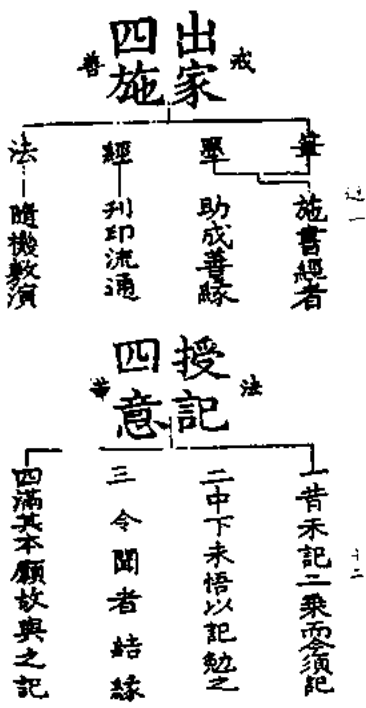 出家
四施
戒
善
筆
施書經者
墨
助成善緣
經
刊印流通
法
隨機敷演
授記
四意
法
一昔未記二乘而今須記
二中下未悟以記勉之
三令聞者結緣
四滿其本願故與之記
十二